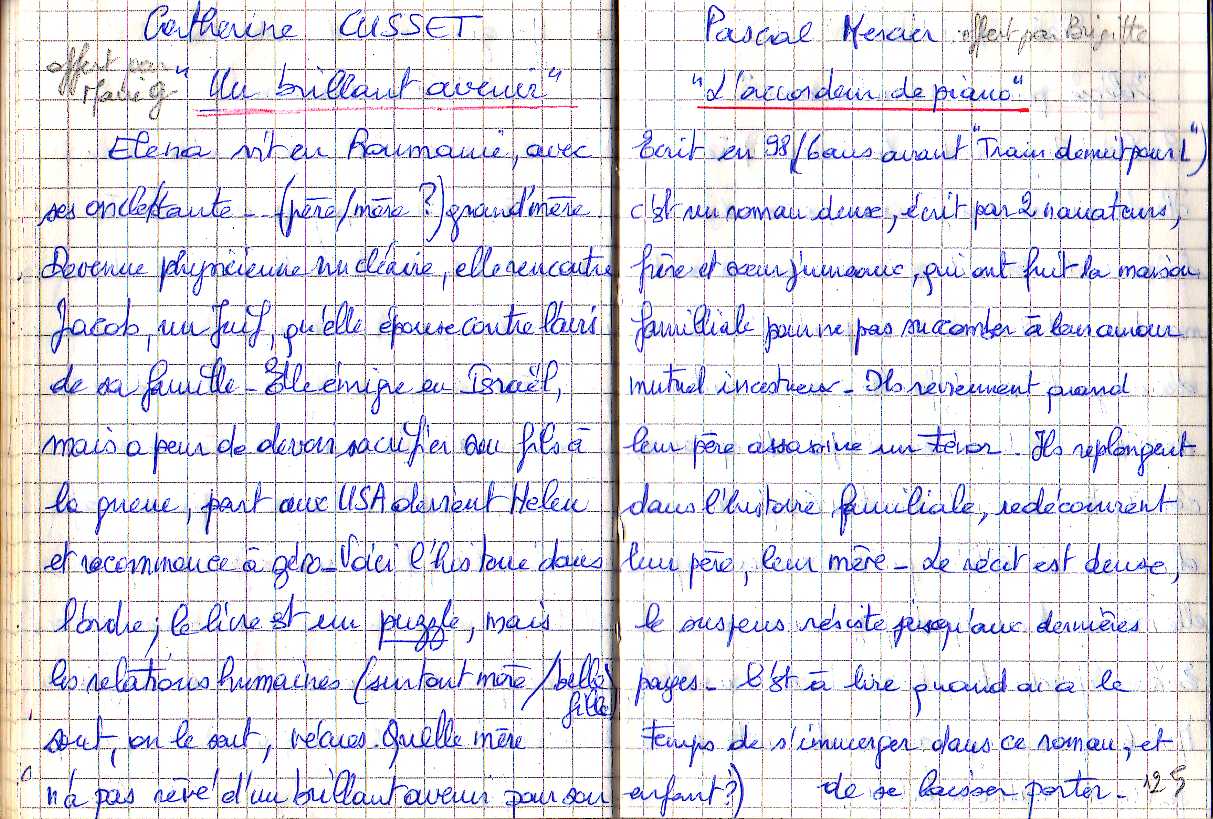 Catherine CUSSET
offert par
"Un brillant avenir"
Elena vit en Roumanie, avec
ses oncle/tante -- (père/mère ?) grand'mère
Devenue physicienne nucléaire, elle rencontre
Jacob, un Juif, qu'elle épouse contre l'avis
de sa famille - Elle émigre en Israël,
mais a peur de devoir sacrifier son fils à
la guerre, part aux USA devient Helen
et recommence à zéro - Voici l'histoire dans
l'ordre ; le livre est un puzzle, mais
les relations humaines (surtout mère / belle
fille)
sont, on le sent, vécues. Quelle mère
n'a pas rêvé d'un brillant avenir pour son enfant ?)
Pascal Mercier offert par Brigitte
"L'accordeur de piano"
Ecrit en 98 (6 ans avant "Train de nuit pour L")
c'est un roman dense, écrit par 2 narrateurs,
frère et soeur jumeaux, qui ont fuit la maison
familliale pour ne pas succomber à leur amour
mutuel incestueux - Ils reviennent quand
leur père assassine un ténor. Ils replongent
dans l'histoire familiale, redécouvrent
leur père, leur mère - Le récit est dense,
le suspens résiste jusqu'aux dernières
pages - C'est à lire quand on a le
temps de s'immerger dans ce roman, et
de se laisser porter - 125